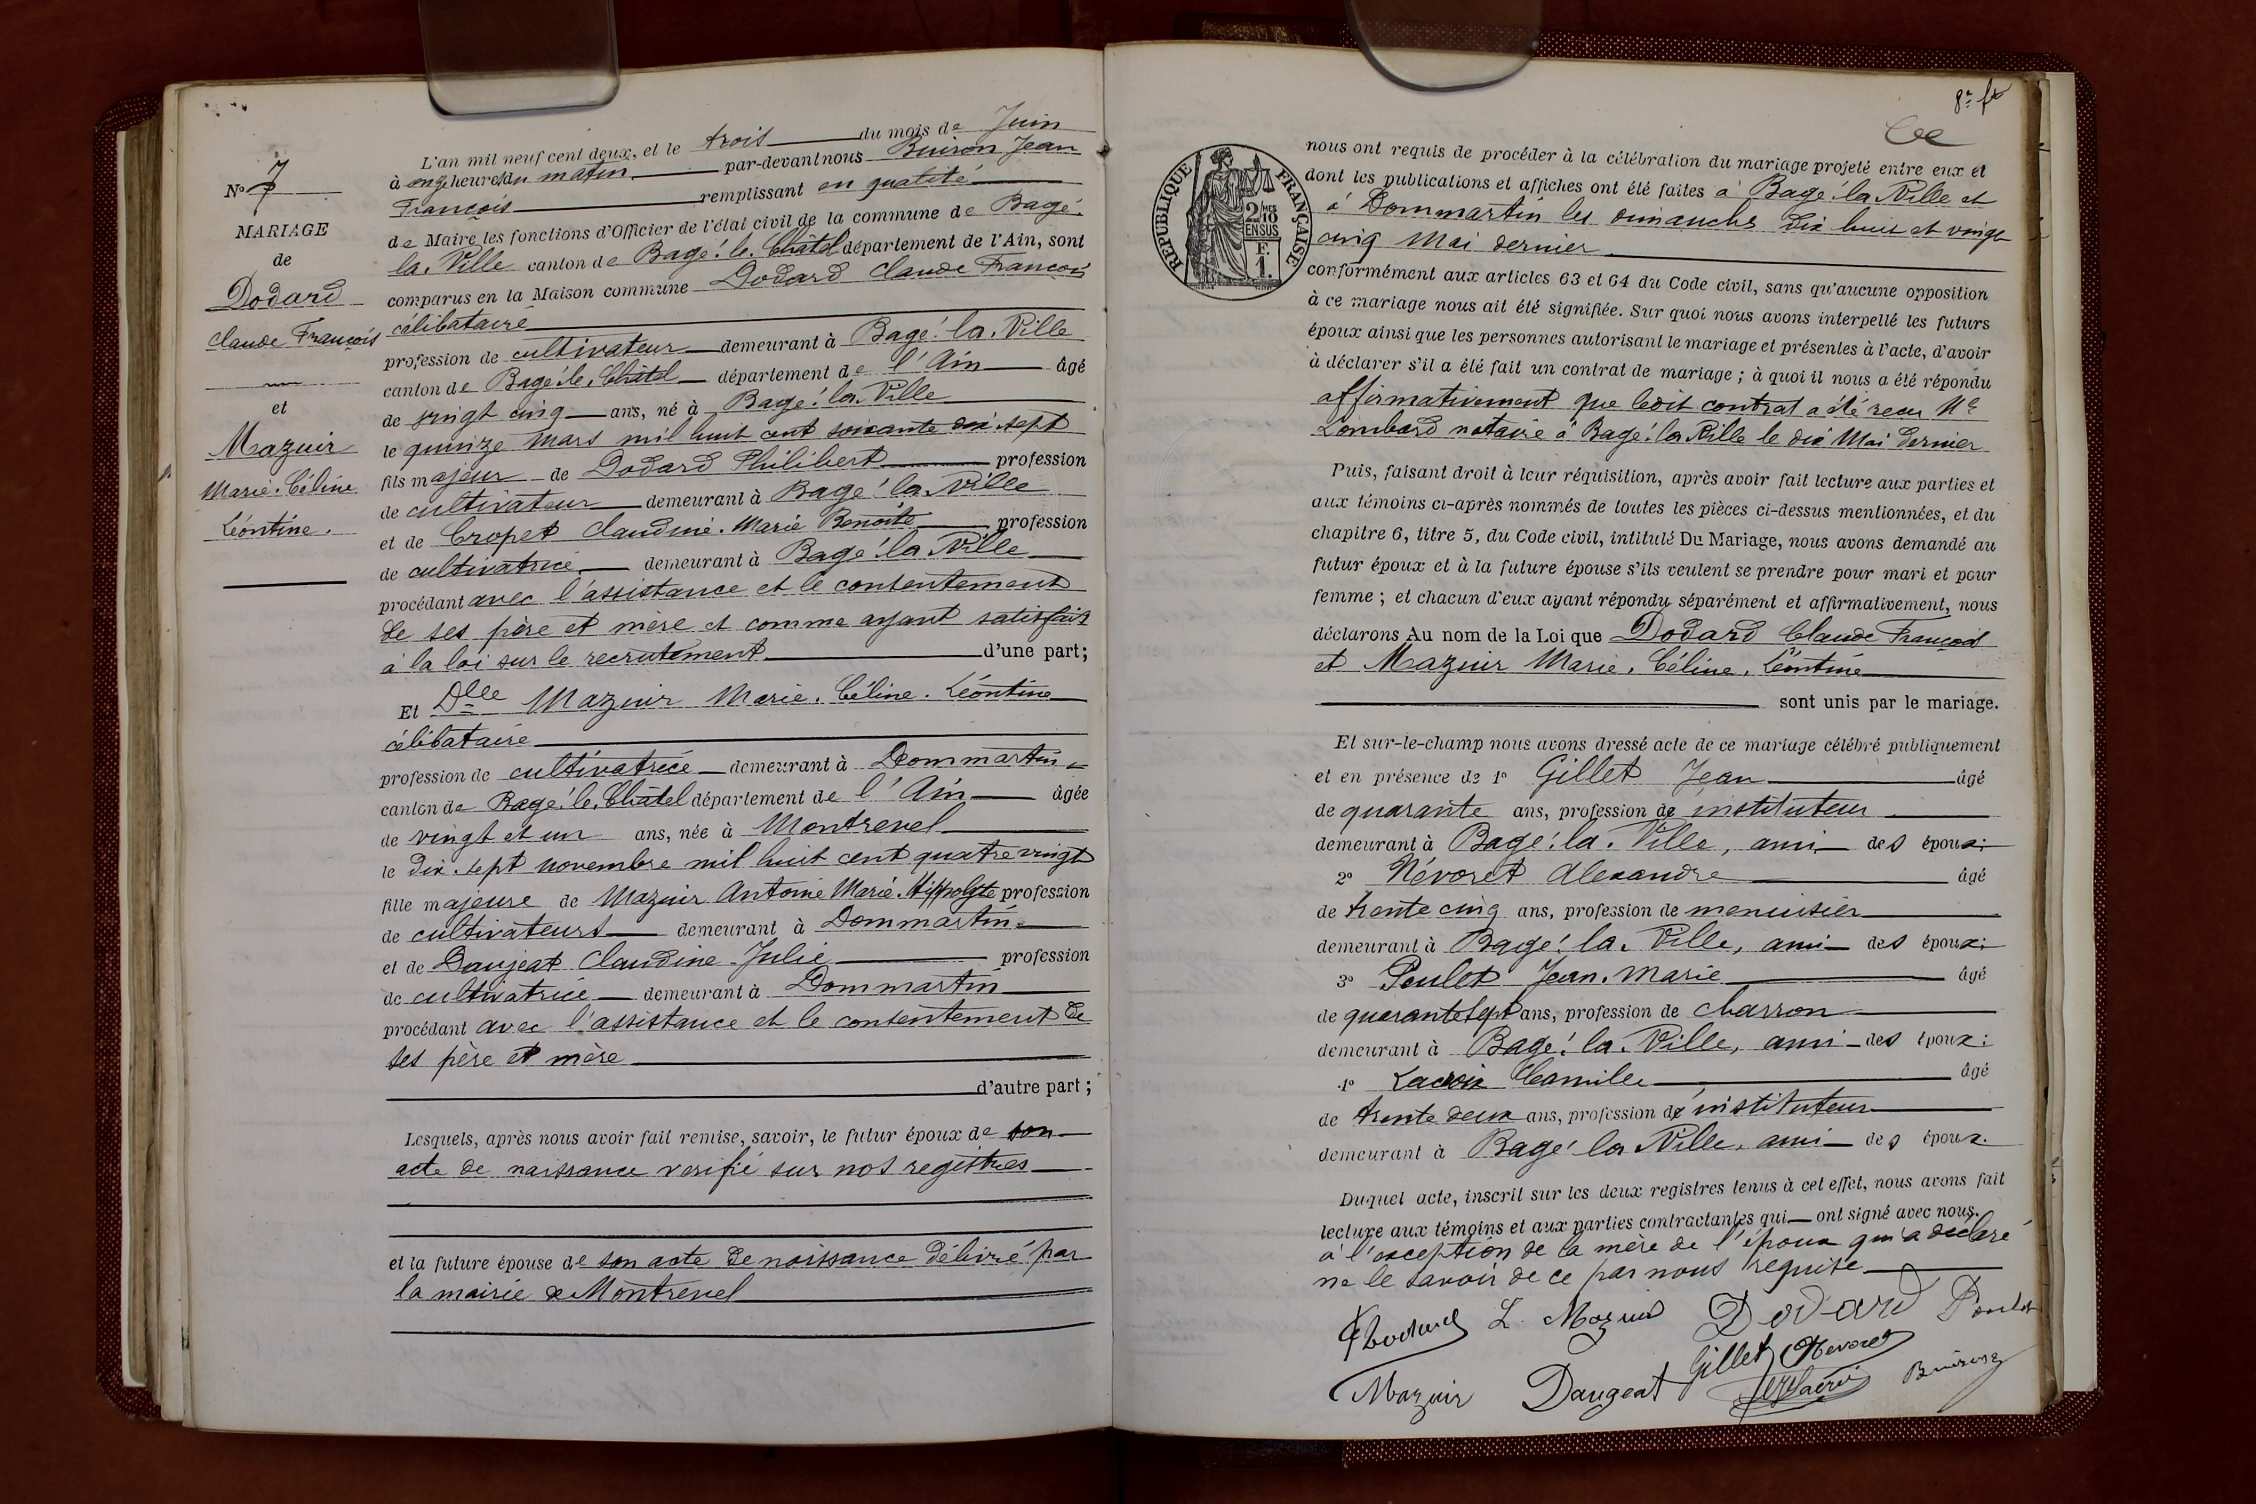 N° 7
MARIAGE
de
Dodard
Claude François
et
Mazuir
Marie. Céline
Léontine.
L'an mil neuf cent deux, et le trois du mois de Juin
à onze heures du matin par-devant nous Buiron Jean
François remplissant en qualité
de Maire les fonctions d'Officier de l'état civil de la commune de Bagé-
la. Ville canton de Bagé-le. Châtel département de l'Ain, sont
comparus en la Maison commune Dodard Claude François
célibataire
profession de cultivateur demeurant à Bagé-la. Ville
canton de Bagé-le. Châtel département de l'Ain âgé
de vingt cinq ans, né à Bagé-la. Ville
le quinze Mars mil huit cent soixante dix. sept
fils majeur de Dodard Philibert profession
de cultivateur demeurant à Bagé-la. Ville
et de Cropet Claudine. Marie Benoite profession
de cultivatrice demeurant à Bagé-la Ville
procédant avec l'assistance et le consentement
de ses père et mère et comme ayant satisfait
à la loi sur le recrutement d'une part;
Et Dlle Mazuir Marie. Céline. Léontine
célibataire
profession de cultivatrice demeurant à Dommartin
canton de Bagé-le. Châtel département de l'Ain âgée
de vingt et un ans, née à Montrevel
le dix. sept novembre mil huit cent quatre vingt
fille majeure de Mazuir Antoine Marie. Hippolyte profession
de cultivateurs demeurant à Dommartin
et de Daujeat Claudine Julie profession
de cultivatrice demeurant à Dommartin
procédant avec l'assistance et le consentement de
ses père et mère
d'autre part;
Lesquels, après nous avoir fait remise, savoir, le futur époux de son
acte de naissance verifié sur nos registres
et la future épouse de son acte de naissance délivré par
la mairie de Montrevel
8e ft
REPUBLIQUE FRANÇAISE
2/10MES
EN SUS
F.
1.
nous ont requis de procéder à la célébration du mariage projeté entre eux et
dont les publications et affiches ont été faites à Bagé-la Ville et
à Dommartin les dimanches dix huit et vingt
cinq Mai dernier
conformément aux articles 63 et 64 du Code civil, sans qu'aucune opposition
à ce mariage nous ait été signifiée. Sur quoi nous avons interpellé les futurs
époux ainsi que les personnes autorisant le mariage et présentes à l'acte, d'avoir
à déclarer s'il a été fait un contrat de mariage; à quoi il nous a été répondu
affirmativement que ledit contrat a été recu Me
Lombard notaire à Bagé-la Ville le dix Mai dernier
Puis, faisant droit à leur réquisition, après avoir fait lecture aux parties et
aux témoins ci-après nommés de toutes les pièces ci-dessus mentionnées, et du
chapitre 6, titre 5, du Code civil, intitulé Du Mariage, nous avons demandé au
futur époux et à la future épouse s'ils veulent se prendre pour mari et pour
femme; et chacun d'eux ayant répondu séparément et affirmativement, nous
déclarons Au nom de la Loi que Dodard Claude François
et Mazuir Marie. Céline. Léontine
sont unis par le mariage.
Et sur-le-champ nous avons dressé acte de ce mariage célébré publiquement
et en présence de 1° Gillet Jean âgé
de quarante ans, profession de instituteur
demeurant à Bagé-la. Ville, ami des époux;
2° Névoret Alexandre âgé
de trente cinq ans, profession de menuisier
demeurant à Bagé-la. Ville, ami des époux;
3° Poulet Jean. Marie âgé
de quarante sept ans, profession de charron
demeurant à Bagé-la. Ville, ami des époux;
4° Lacroix Camille âgé
de trente deux ans, profession de instituteur
demeurant à Bagé-la Ville, ami des époux.
Duquel acte, inscrit sur les deux registres tenus à cet effet, nous avons fait
lecture aux témoins et aux parties contractantes qui ont signé avec nous.
à l'exception de la mère de l'époux qui a déclaré
ne le savoir de ce par nous requise
L. Mazuir Dodard Poulet
Gillet Nevoret
Mazuir Daugeat Lacroix Buiron